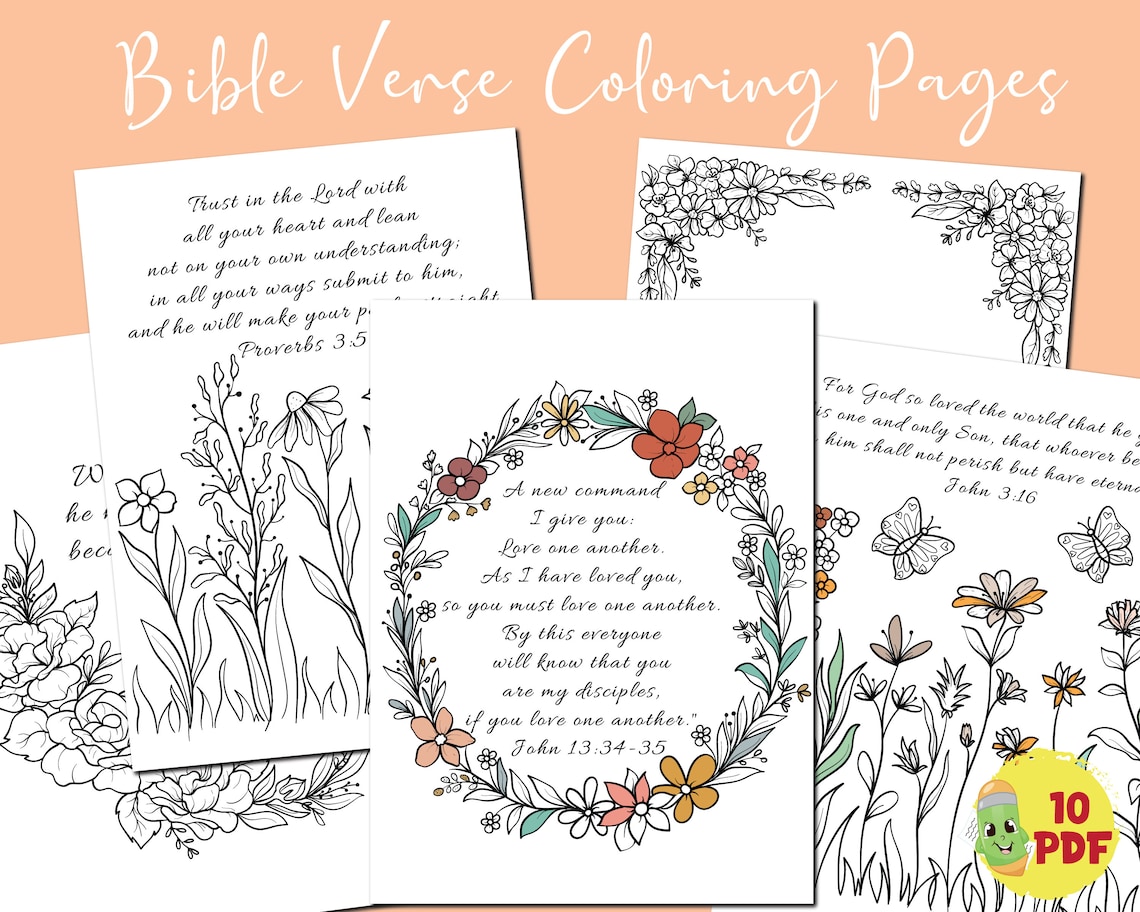 Bible Verse Coloring Pages
Trust in the Lord with
all your heart and lean
not on your own understanding;
in all your ways submit to him,
and he will make your
Proverbs 3:5
he
A new command
I give you:
Love one another.
As I have loved you,
so you must love one another.
By this everyone
will know that you
are my disciples,
if you love one another."
John 13:34-35
For God so loved the world that he
one and only Son, that whoever
him shall not perish but have
John 3:16
10
PDF